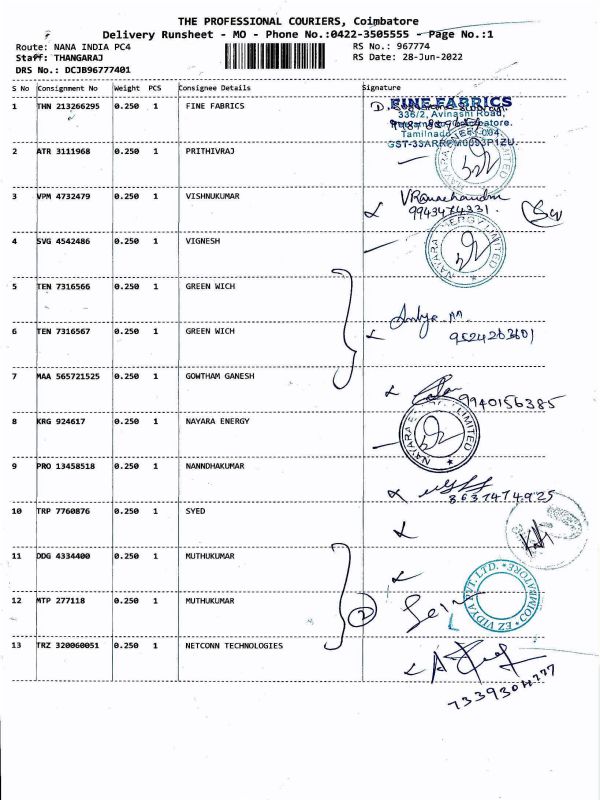 THE PROFESSIONAL COURIERS, Coimbatore
Delivery Runsheet - MO - Phone No.:0422-3505555 - Page No.:1
Route: NANA INDIA PC4 RS No.: 967774
Staff: THANGARAJ RS Date: 28-Jun-2022
DRS No.: DCJB96777401
S No Consignment No Weight PCS Consignee Details Signature
1 THN 213266295 0.250 1 FINE FABRICS
FINE FABRICS
336/2, Avinashi Road,
Tamilnadu
GST-33
2 ATR 3111968 0.250 1 PRITHIVRAJ
3 VPM 4732479 0.250 1 VISHNUKUMAR
V Ramachandran
9943474331.
4 SVG 4542486 0.250 1 VIGNESH
NAYARA ENERGY LIMITED
5 TEN 7316566 0.250 1 GREEN WICH
6 TEN 7316567 0.250 1 GREEN WICH
7 MAA 565721525 0.250 1 GOWTHAM GANESH
9940156385
8 KRG 924617 0.250 1 NAYARA ENERGY
NAYARA LIMITED
9 PRO 13458518 0.250 1 NANNDHAKUMAR
8637474925
10 TRP 7760876 0.250 1 SYED
11 DDG 4334400 0.250 1 MUTHUKUMAR
12 MTP 277118 0.250 1 MUTHUKUMAR
2
EZ VIDZ PVT. LTD. * COIMBATORE *
13 TRZ 320060051 0.250 1 NETCONN TECHNOLOGIES